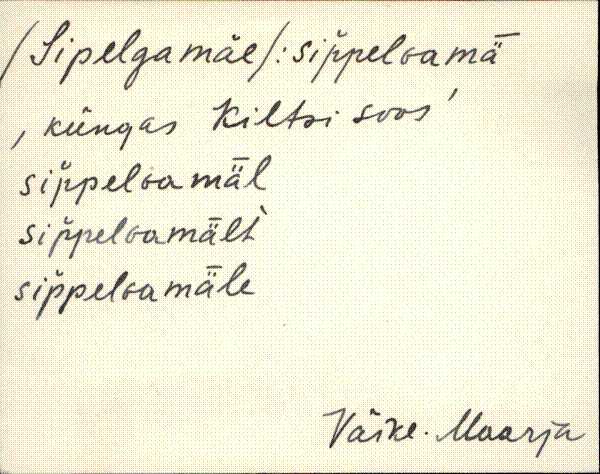 /Sipelgamäe/: sip̆peloamǟ
, küngas Kiltsi soos'
sip̆peloamǟl
sip̆peloamǟlt̀
sip̆peloamǟle
Väike-Maarja